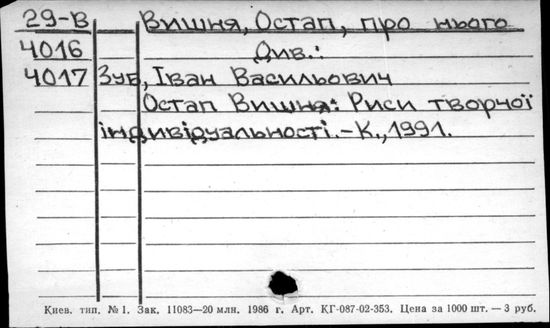 29-В Вишня, Остап, про нього
4016 Див.:
4017 Зуб, Іван Васильович
Остап Вишня: Риси творчої
індивідуальності.-К., 1991.
Киев. тип. № 1. Зак. 11083—20 млн. 1986 г. Арт. КГ-087-02-353. Цена за 1000 шт. — 3 руб.